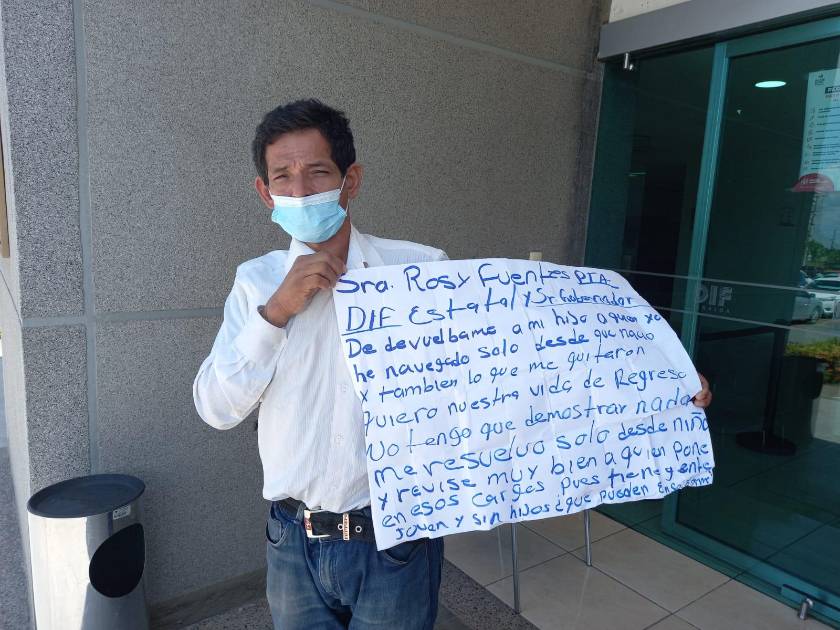 Sra. Rosy Fuentes PTA.
DIF Estatal y Sr Gobernador
De devuelbame a mi hijo a quien yo
he navegado solo desde que nacio
y tambien lo que me quitaron
quiero nuestra vida de Regreso
No tengo que demostrar nada
me resuelvo solo desde niño
y revise muy bien a quien pone
en esos cargos pues tiene gente
joven y sin hijos ¿que pueden
DIF